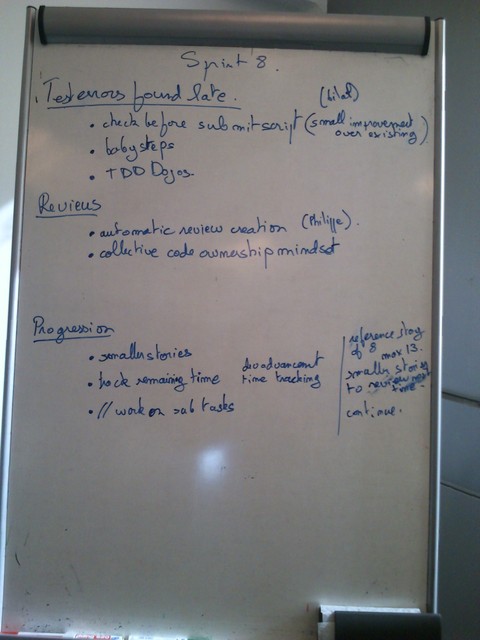 Sprint 8.
Test errors found late.
(bilal)
• check before submit script (small improvement
over existing)
• baby steps
• TDD Dojos.
Reviews
• automatic review creation (Philippe).
• collective code ownership mindset
Progression
• smaller stories
• track remaining time
time tracking
• // work on sub tasks
reference story
of 8 max 13.
smaller stories
to review next
time.
continue.